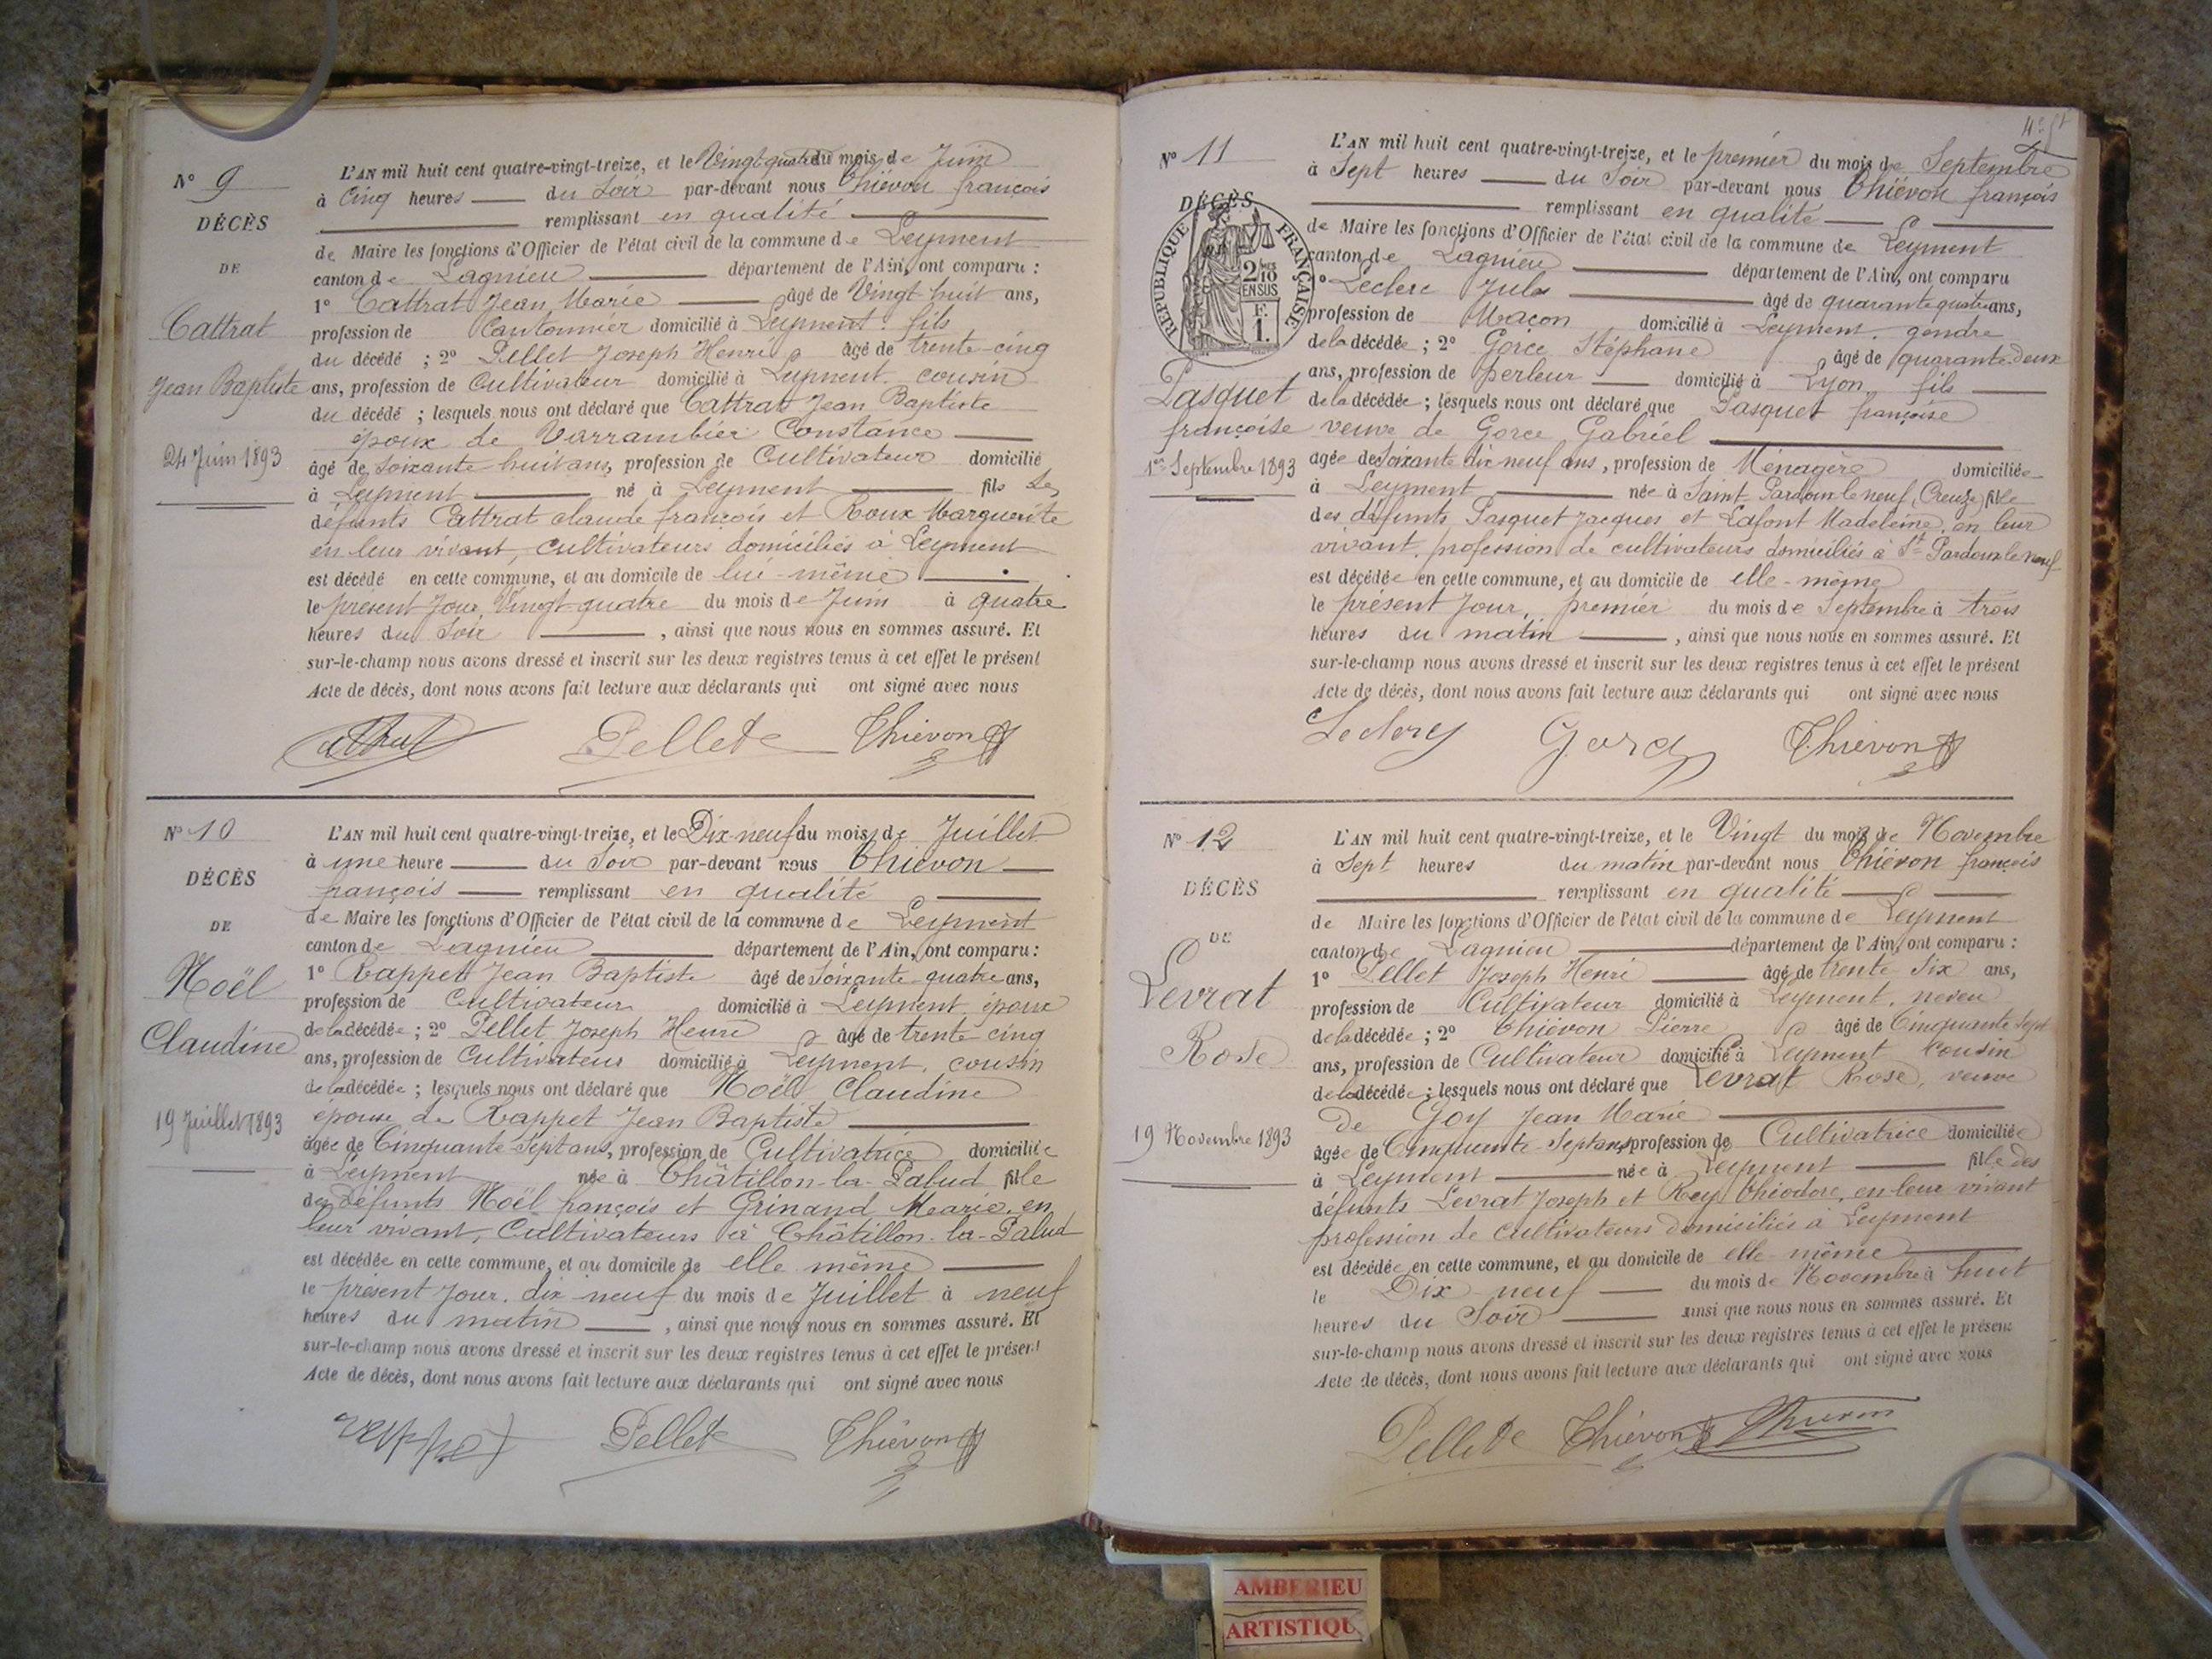 N° 9
DÉCÈS
DE
Cattrat
Jean Baptiste
24 Juin 1893
L'AN mil huit cent quatre-vingt-treize, et le Vingt quatre du mois de Juin
à Cinq heures du Soir par-devant nous Thiévon françois
remplissant en qualité
de Maire les fonctions d'Officier de l'état civil de la commune de Leyment
canton de Lagnieu département de l'Ain, ont comparu :
1° Cattrat Jean Marie âgé de Vingt huit ans,
profession de Cantonnier domicilié à Leyment. fils
du décédé ; 2° Pellet Joseph Henri âgé de trente-cinq
ans, profession de Cultivateur domicilié à Leyment. cousin
du décédé ; lesquels nous ont déclaré que Cattrat Jean Baptiste
époux de Varrambier Constance
âgé de Soixante huit ans, profession de Cultivateur domicilié
à Leyment né à Leyment fils des
défunts Cattrat claude françois et Roux Marguerite
en leur vivant, cultivateurs domiciliés à Leyment
est décédé en cette commune, et au domicile de lui-même
le présent Jour, Vingt-quatre du mois de Juin à quatre
heures du Soir , ainsi que nous nous en sommes assuré. Et
sur-le-champ nous avons dressé et inscrit sur les deux registres tenus à cet effet le présent
Acte de décès, dont nous avons fait lecture aux déclarants qui ont signé avec nous
Pellet Thiévon
N° 10
DÉCÈS
DE
Noël
Claudine
19 Juillet 1893
L'AN mil huit cent quatre-vingt-treize, et le Dix-neuf du mois de Juillet
à une heure du Soir par-devant nous Thiévon
françois remplissant en qualité
de Maire les fonctions d'Officier de l'état civil de la commune de Leyment
canton de Lagnieu département de l'Ain, ont comparu :
1° Rappet Jean Baptiste âgé de Soixante-quatre ans,
profession de Cultivateur domicilié à Leyment, époux
de la décédée ; 2° Pellet Joseph Henri âgé de trente cinq
ans, profession de Cultivateur domicilié à Leyment, cousin
de la décédée ; lesquels nous ont déclaré que Noël Claudine
épouse de Rappet Jean Baptiste
âgée de Cinquante Sept ans, profession de Cultivatrice domiciliée
à Leyment née à Châtillon-la-Palud fille
des défunts Noël françois et Grinand Marie, en
leur vivant, Cultivateurs à Châtillon-la-Palud
est décédée en cette commune, et au domicile de elle même
le présent Jour. dix-neuf du mois de Juillet à neuf
heures du matin , ainsi que nous nous en sommes assuré. Et
sur-le-champ nous avons dressé et inscrit sur les deux registres tenus à cet effet le présent
Acte de décès, dont nous avons fait lecture aux déclarants qui ont signé avec nous
rappet Pellet Thiévon
N° 11
DÉCÈS
RÉPUBLIQUE FRANÇAISE
2/10 EN SUS
F. 1.
Pasquet
françoise
1er Septembre 1893
L'AN mil huit cent quatre-vingt-treize, et le premier du mois de Septembre
à Sept heures du Soir par-devant nous Thiévon françois
remplissant en qualité
de Maire les fonctions d'Officier de l'état civil de la commune de Leyment
canton de Lagnieu département de l'Ain, ont comparu
1° Leclerc Jules âgé de quarante quatre ans,
profession de Maçon domicilié à Leyment. gendre
de la décédée ; 2° Gorce Stéphane âgé de quarante-deux
ans, profession de perleur domicilié à Lyon, fils
de la décédée ; lesquels nous ont déclaré que Pasquet françoise
veuve de Gorce Gabriel
agée de Soixante dix neuf ans, profession de Ménagère domiciliée
à Leyment née à Saint Pardoux le neuf (Creuze) fille
des défunts Pasquet Jacques et Lafont Madeleine, en leur
vivant, profession de cultivateurs domiciliés à St Pardoux le neuf
est décédée en cette commune, et au domicile de elle-même
le présent Jour, premier du mois de Septembre à trois
heures du matin , ainsi que nous nous en sommes assuré. Et
sur-le-champ nous avons dressé et inscrit sur les deux registres tenus à cet effet le présent
Acte de décès, dont nous avons fait lecture aux déclarants qui ont signé avec nous
Leclerc Thiévon
N° 12
DÉCÈS
DE
Levrat
Rose
19 Novembre 1893
L'AN mil huit cent quatre-vingt-treize, et le Vingt du mois de Novembre
à Sept heures du matin par-devant nous Thiévon françois
remplissant en qualité
de Maire les fonctions d'Officier de l'état civil de la commune de Leyment
canton de Lagnieu département de l'Ain, ont comparu :
1° Pellet Joseph Henri âgé de trente Six ans,
profession de Cultivateur domicilié à Leyment. neveu
de la décédée ; 2° Thiévon Pierre âgé de Cinquante Sept
ans, profession de Cultivateur domicilié à Leyment cousin
de la décédée ; lesquels nous ont déclaré que Levrat Rose, veuve
de Goy Jean Marie
âgée de Cinquante-Sept ans, profession de Cultivatrice domiciliée
à Leyment née à Leyment fille des
défunts Levrat Joseph et Rey théodore, en leur vivant
profession de cultivateurs domiciliés à Leyment
est décédée en cette commune, et au domicile de elle-même
le Dix neuf du mois de Novembre à huit
heures du Soir ainsi que nous nous en sommes assuré. Et
sur-le-champ nous avons dressé et inscrit sur les deux registres tenus à cet effet le présent
Acte de décès, dont nous avons fait lecture aux déclarants qui ont signé avec nous
Pellet Thiévon Thiévon
AMBERIEU
ARTISTIQU